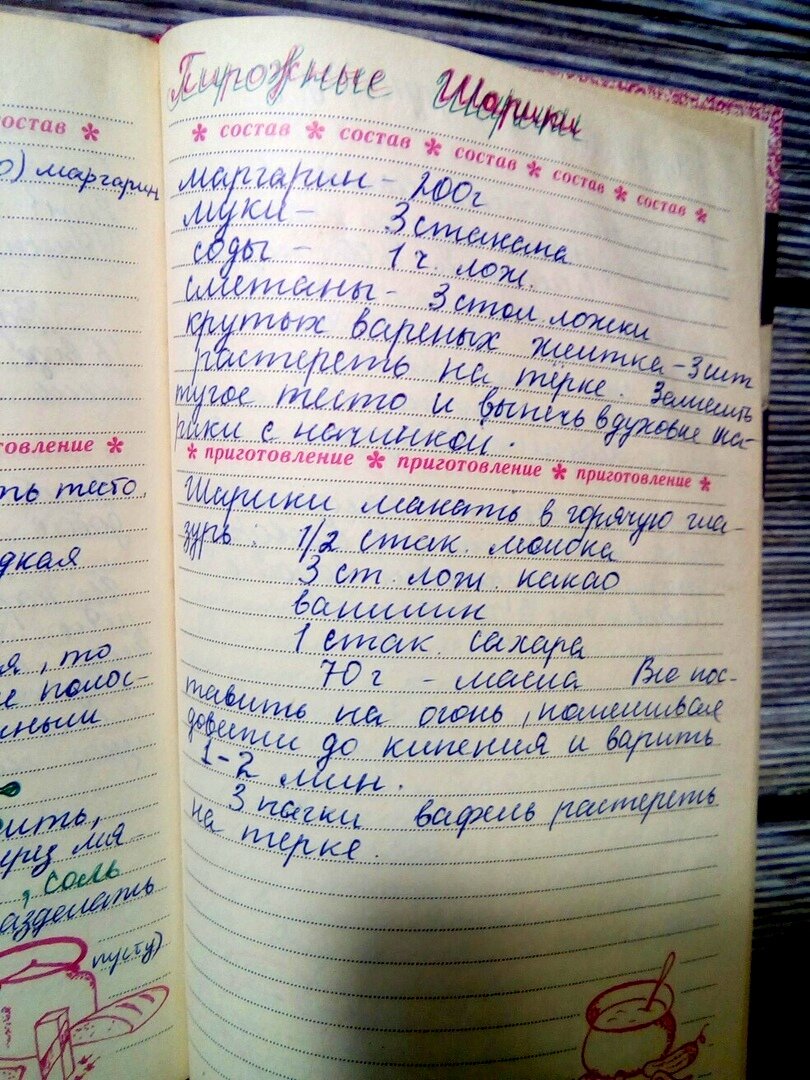 остав *
о) маргарин
товление *
ть тесто,
дкая
я, то
е полос-
ными
ить,
, соль
азделать
пусту)
Пирожные Шарики
* состав * состав * состав * состав * состав *
маргарин - 200г
муки - 3 стакана
соды - 1 ч. лож.
сметаны - 3 стол ложки
крутых вареных желтка - 3 шт
растереть на терке. Замесить
тугое тесто и выпечь в духовке ша-
рики с начинкой.
* приготовление * приготовление * приготовление *
Шарики макать в горячую гла-
зурь: 1/2 стак. молока
3 ст. лож. какао
ванилин
1 стак. сахара
70 г - масла Все пос-
тавить на огонь, помешивая
довести до кипения и варить
1-2 мин.
3 пачки вафель растереть
на терке.